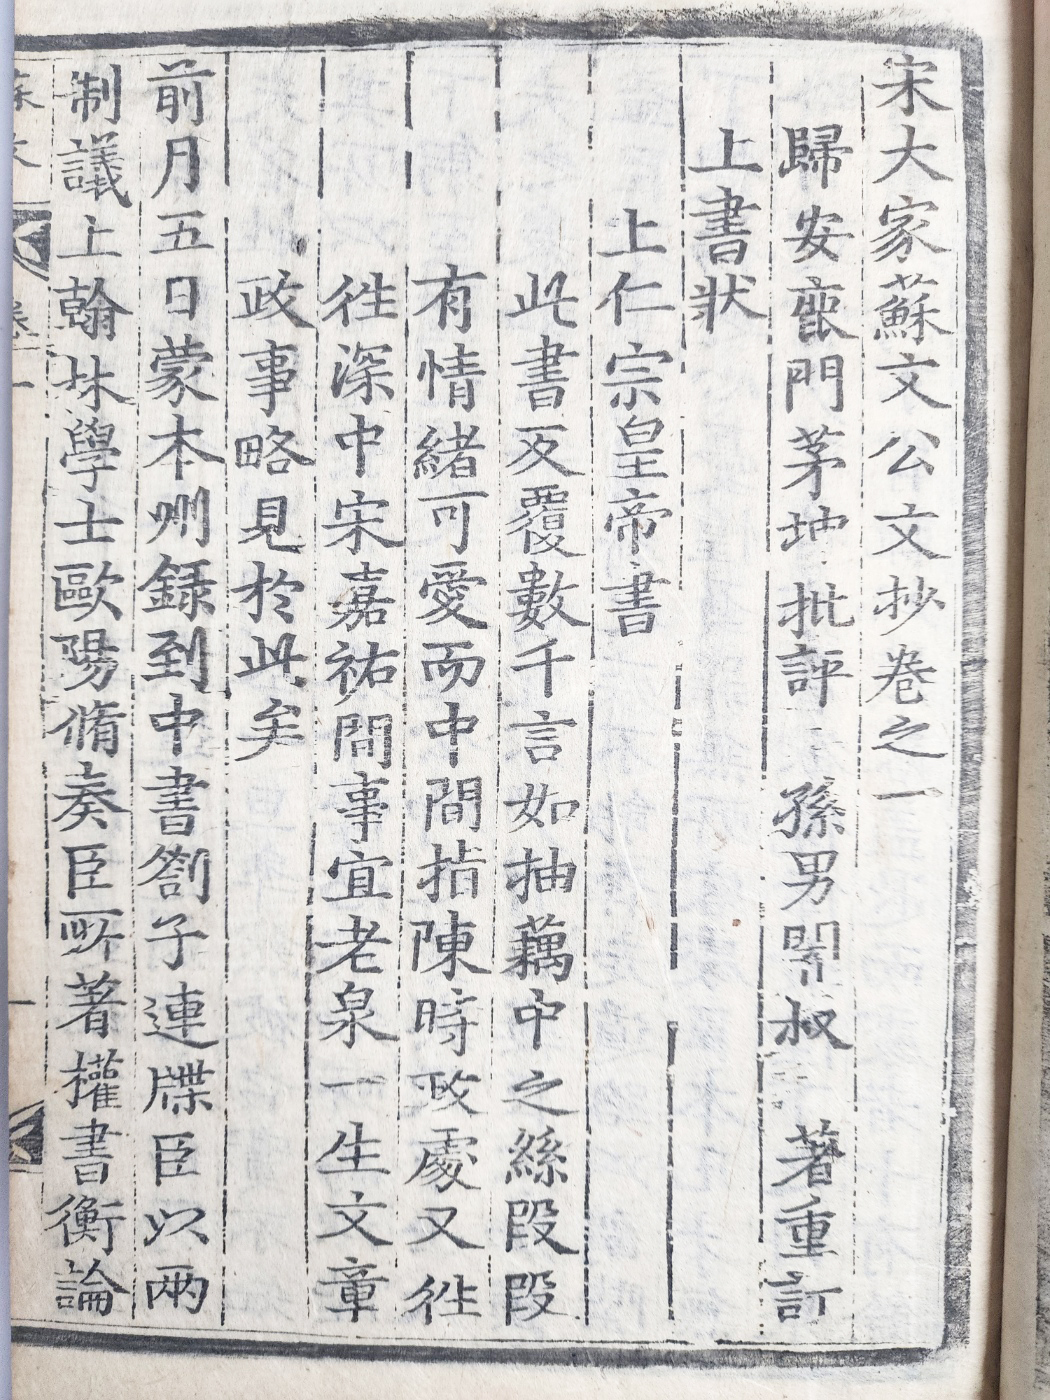 宋大家蘇文公文抄卷之一
歸安鹿門茅坤批評 孫男闇叔 著重訂
上書狀
上仁宗皇帝書
此書反覆數千言如抽藕中之絲段段
有情緒可愛而中間指陳時政處又徃
徃深中宋嘉祐間事宜老泉一生文章
政事略見於此矣
前月五日蒙本州録到中書劄子連牒臣以兩
制議上翰林學士歐陽脩奏臣所著權書衡論